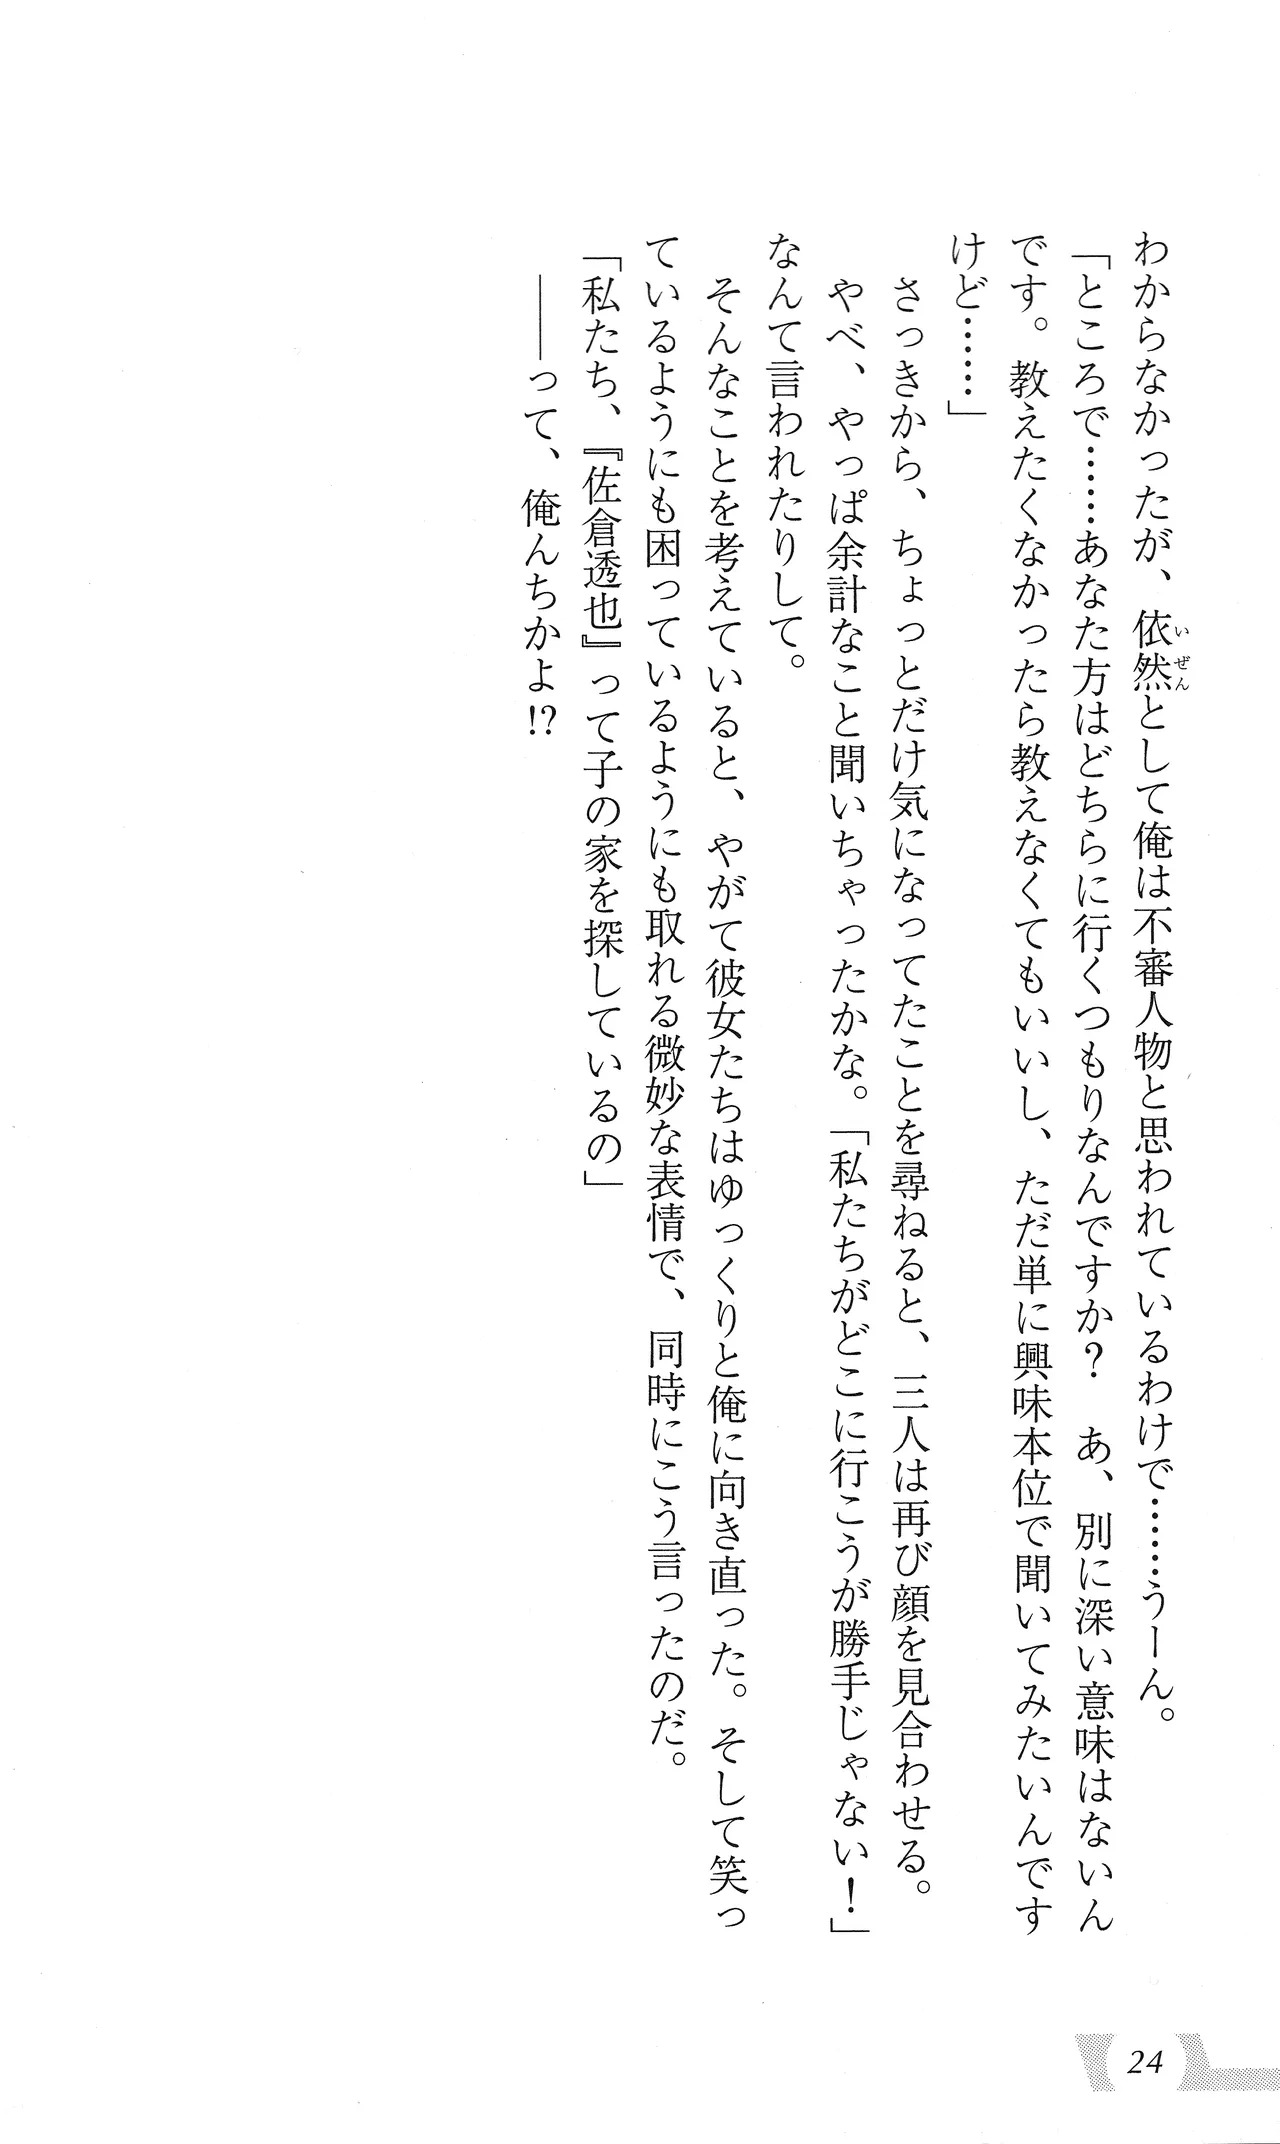 わからなかったが、依然として俺は不審人物と思われているわけで……うーん。
「ところで……あなた方はどちらに行くつもりなんですか？　あ、別に深い意味はないん
です。教えたくなかったら教えなくてもいいし、ただ単に興味本位で聞いてみたいんです
けど……」
　さっきから、ちょっとだけ気になってたことを尋ねると、三人は再び顔を見合わせる。
　やべ、やっぱ余計なこと聞いちゃったかな。「私たちがどこに行こうが勝手じゃない！」
なんて言われたりして。
　そんなことを考えていると、やがて彼女たちはゆっくりと俺に向き直った。そして笑っ
ているようにも困っているようにも取れる微妙な表情で、同時にこう言ったのだ。
「私たち、『佐倉透也』って子の家を探しているの」
　――って、俺んちかよ!?
24